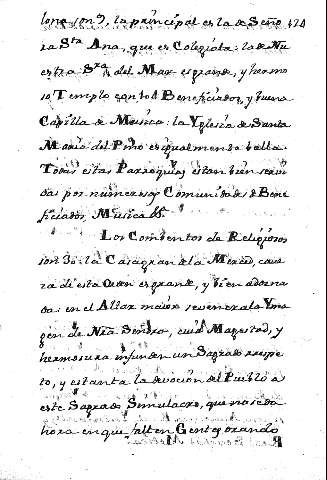 lona son 9, la principal es la de Seño 424
ra Sta Ana, que es Colegiata: la de Nu
estra Sra del Mar es grande, y hermo
so Templo con 101 Beneficiados, y buena
Capilla de Musica: la Yglesia de Santa
Maria del Pino es igualmente bella.
Todas estas Parroquias estan bien servi
das por numerosas Comunidades de Bene
ficiados, Musica &c.
Los Combentos de Religiosos
son 30: la Casa grande la Merced, cave
za di esta Orden es grande, y bien adorna
da: en el Altar maior se venera la Yma
gen de Nra Señora, cuia Magestad, y
hermosura infunden un Sagrado respe
to, y es tanta la devocion del Pueblo a
este Sagrado Simulacro, que no se da
hora en que falten Gentes orando